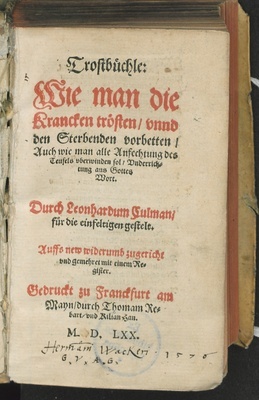 Trostbüchle:
Wie man die
Krancken trösten/ vnnd
den Sterbenden vorbetten/
Auch wie man alle Anfechtung des
Teufels vberwinden sol/ Vnderrich-
tung aus Gottes
Wort.
Durch Leonhardum Culman/
für die einfeltigen gestelt.
Auffs new widerumb zugericht
vnd gemehret mit einem Re-
gister.
Gedruckt zu Franckfurt am
Mayn/ durch Thomam Re-
bart/ vnd Kilian Han.
M. D. LXX.
Herman Wacker 1576